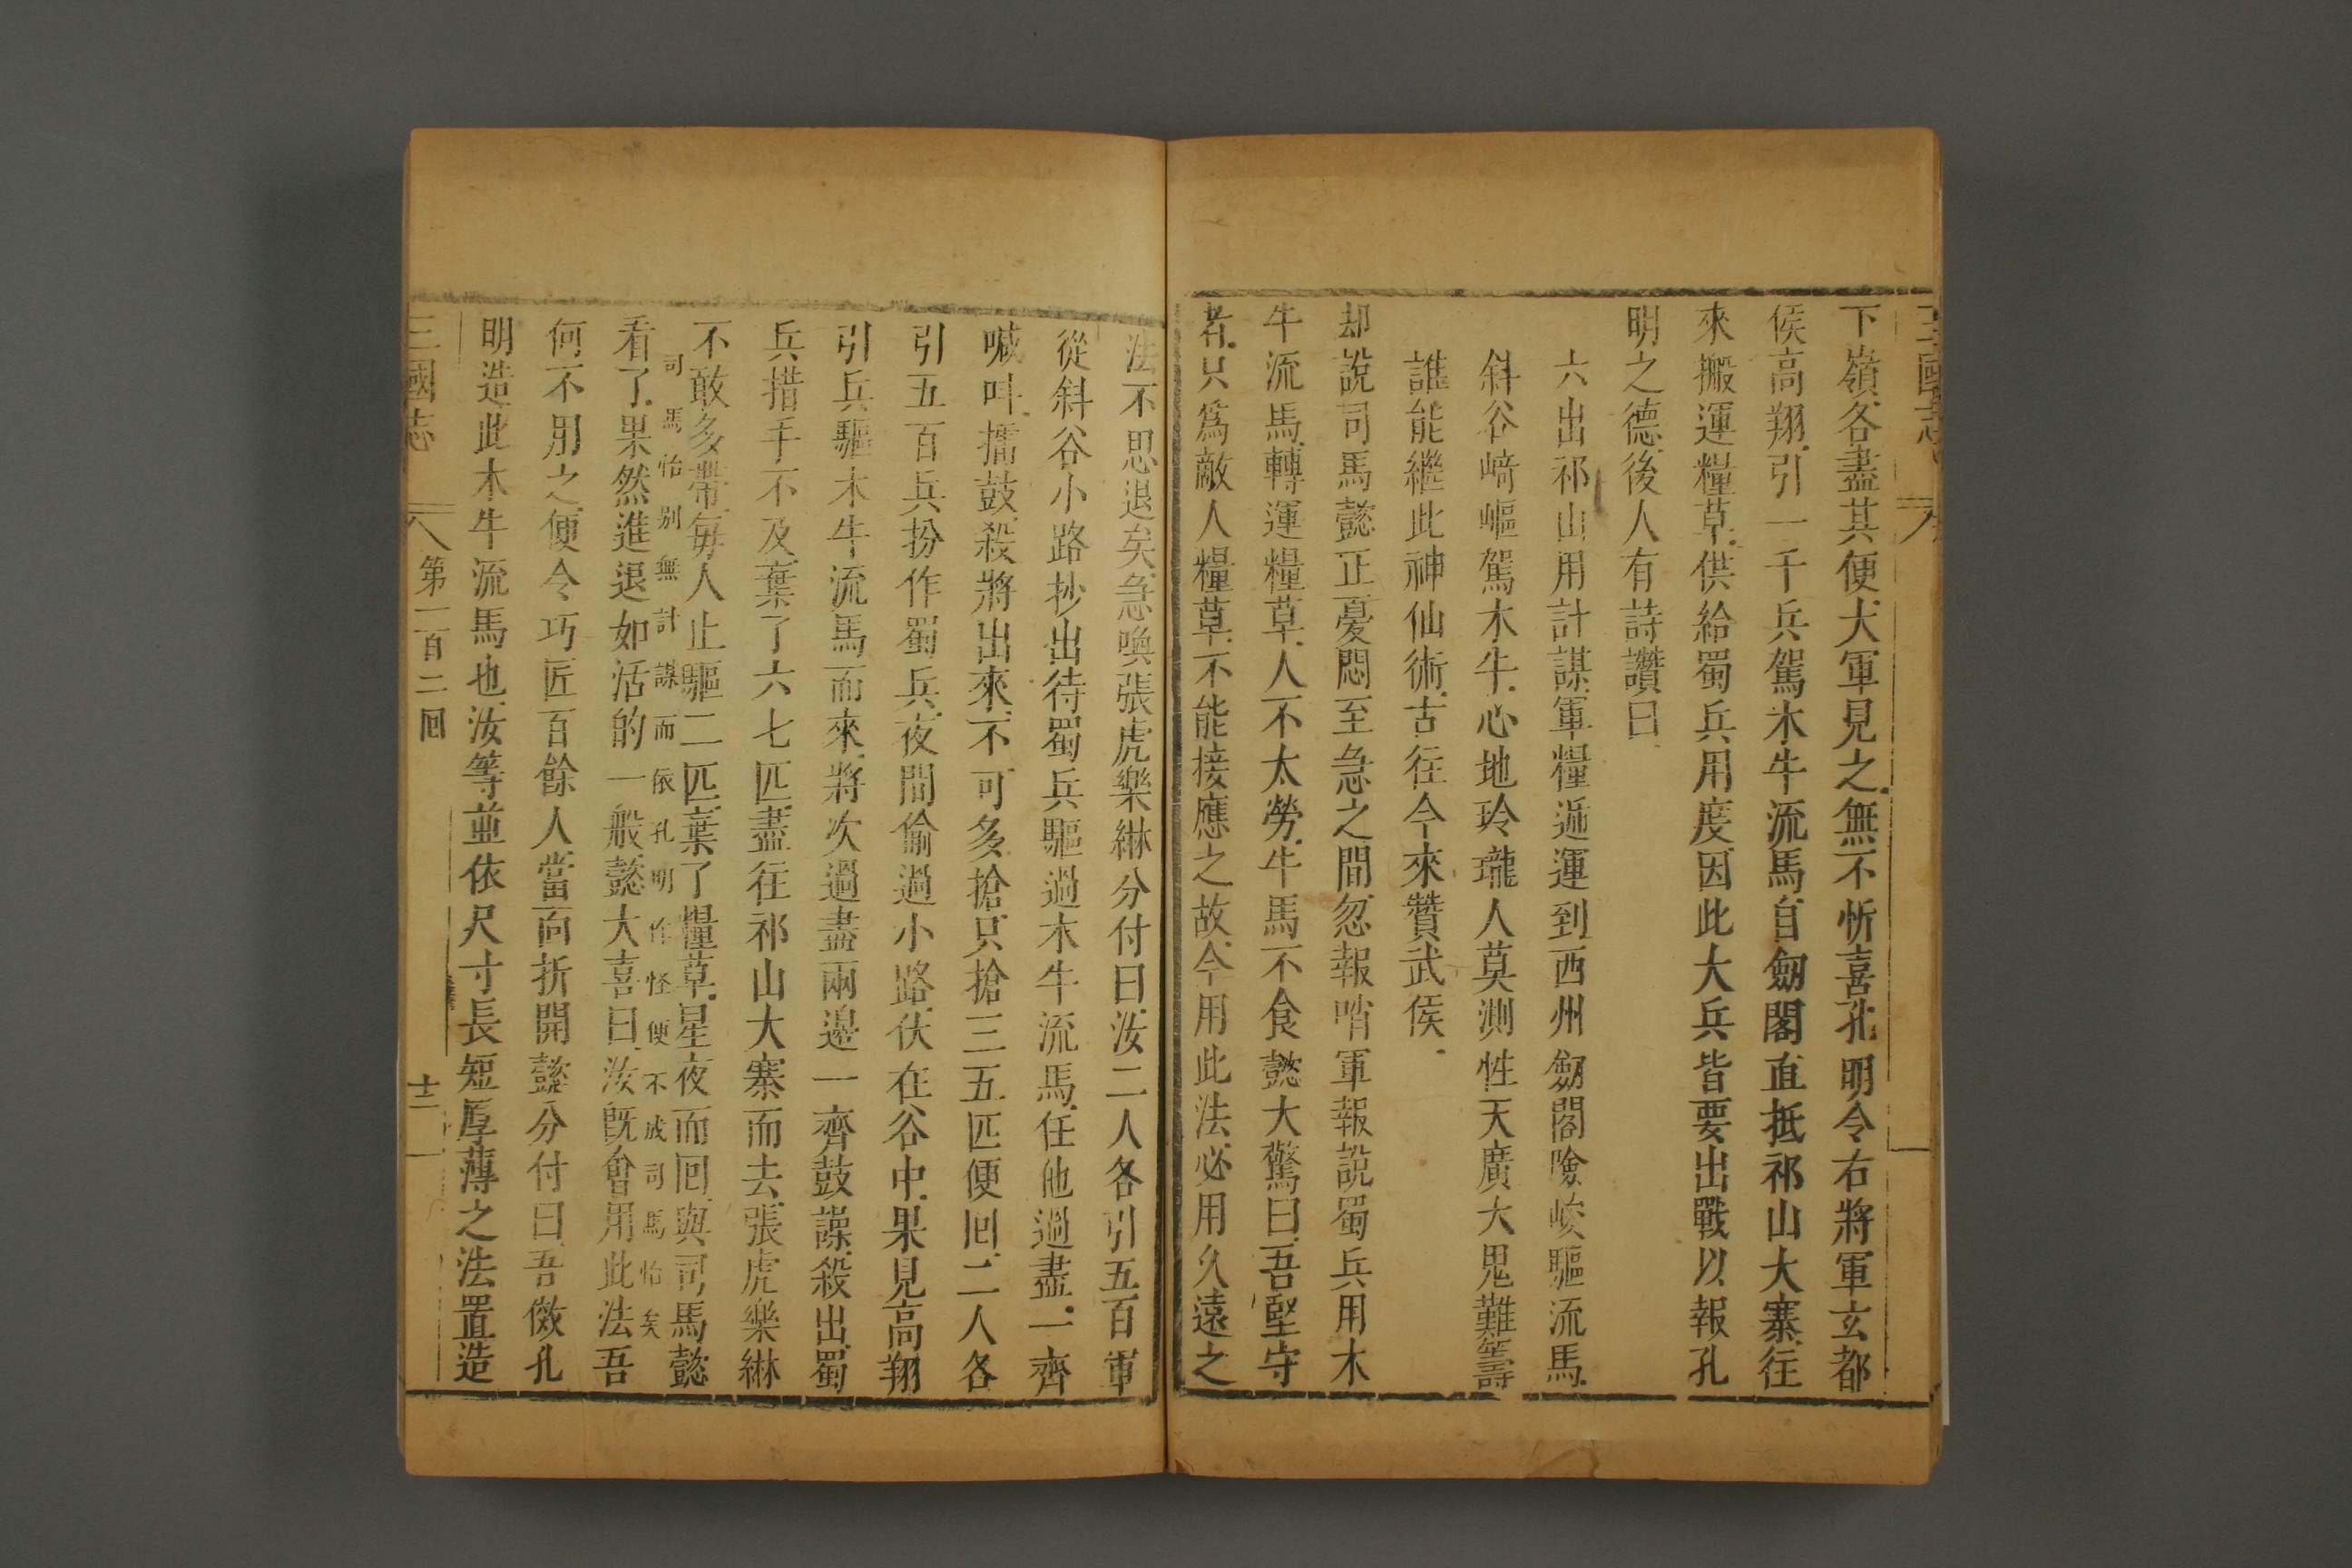 三國志
下嶺各盡其便大軍見之無不忻喜孔明令右將軍玄都
侯高翔引一千兵駕木牛流馬自劒閣直抵祁山大寨往
來搬運糧草供給蜀兵用度因此大兵皆要出戰以報孔
明之德後人有詩讚曰
六出祁山用計謀軍糧遞運到西州劒閣險峻驅流馬
斜谷崎嶇駕木牛心地玲瓏人莫測性天廣大鬼難籌
誰能繼此神仙術古往今來贊武侯
却說司馬懿正憂悶至急之間忽報哨軍報說蜀兵用木
牛流馬轉運糧草人不太勞牛馬不食懿大驚曰吾堅守
者只爲敵人糧草不能接應之故今用此法必用久遠之
法不思退矣急喚張虎樂綝分付曰汝二人各引五百軍
從斜谷小路抄出待蜀兵驅過木牛流馬任他過盡一齊
喊叫擂鼓殺將出來不可多搶只搶三五匹便囘二人各
引五百兵扮作蜀兵夜間偷過小路伏在谷中果見高翔
引兵驅木牛流馬而來將次過盡兩邊一齊鼓譟殺出蜀
兵措手不及棄了六七匹盡往祁山大寨而去張虎樂綝
不敢多帶每人止驅二匹棄了糧草星夜而囘與司馬懿
司馬怡别無計謀而依孔明作怪便不成司馬怡矣
看了果然進退如活的一般懿大喜曰汝旣會用此法吾
何不用之便令巧匠百餘人當面折開懿分付曰吾儌孔
明造此木牛流馬也汝等並依尺寸長短厚薄之法置造
三國志 第一百二囘 十二